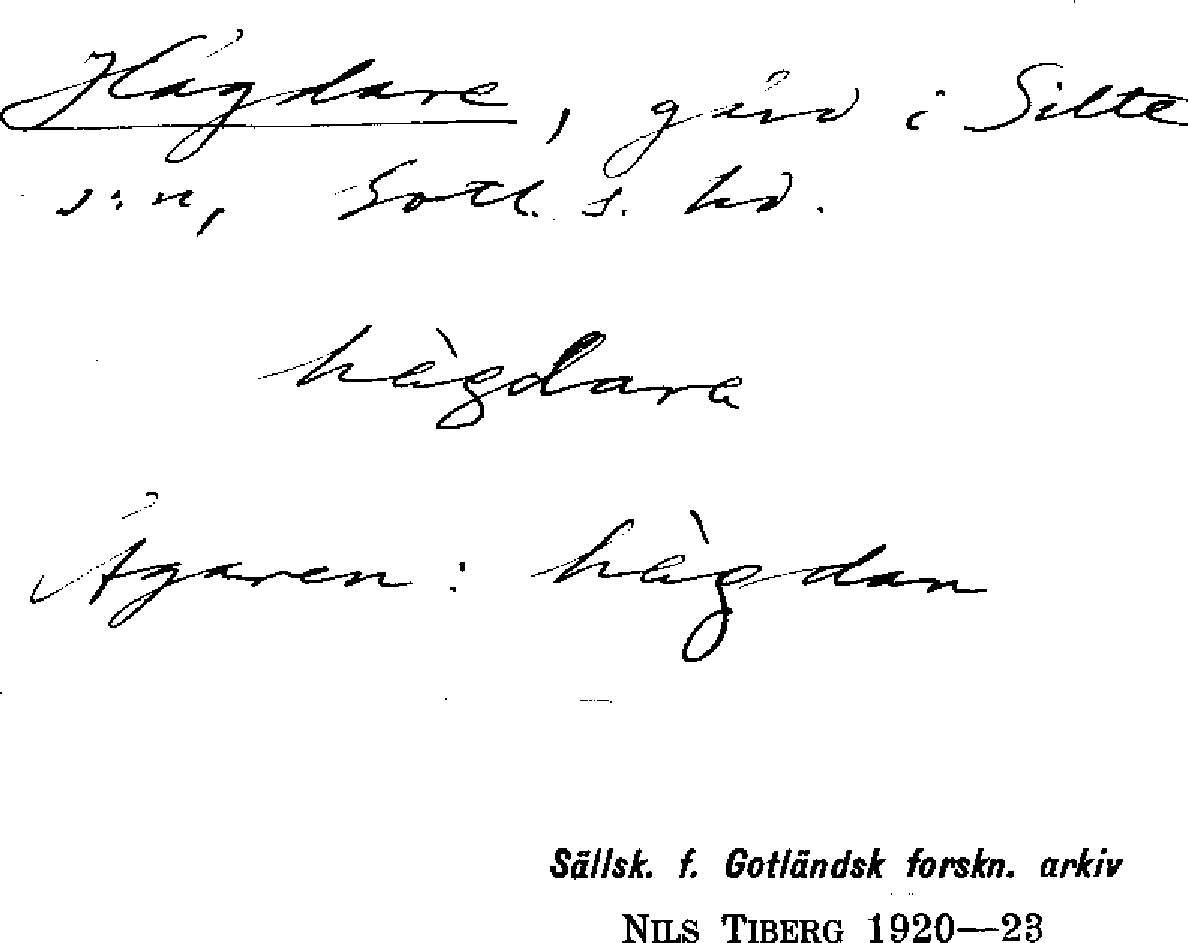 Hägdare, gård i Silte
s:n, Gotl. s. hd.
hàgdara
Ägaren: hàgdan
Sällsk. f. Gotländsk forskn. arkiv
NILS TIBERG 1920—23